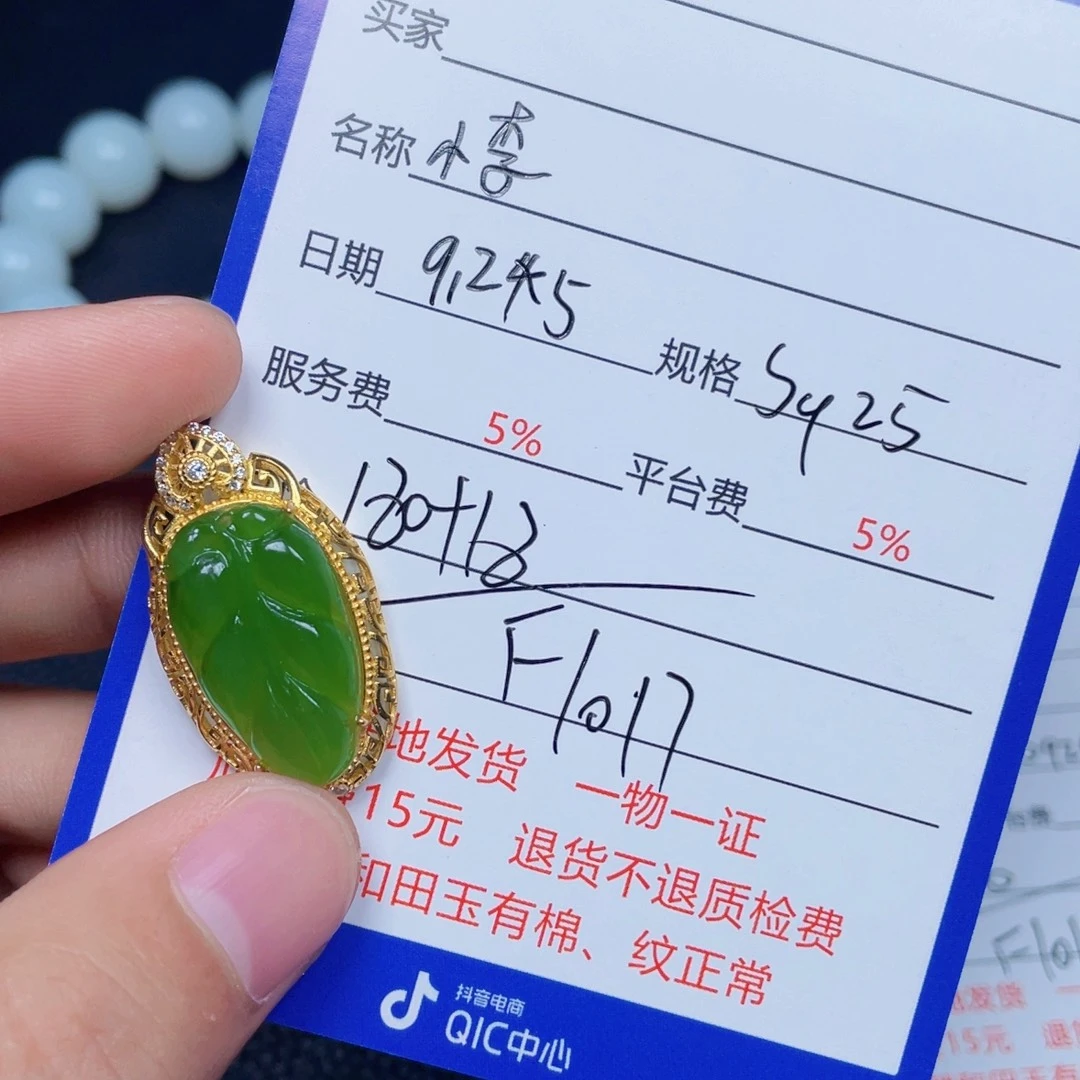 买家
名称 小李
日期 9,24k5 规格 Sy25
服务费 5% 平台费 5%
180+18
F1017
地发货 一物一证
15元 退货不退质检费
和田玉有棉、纹正常
抖音电商
QIC中心
F101
15元 退